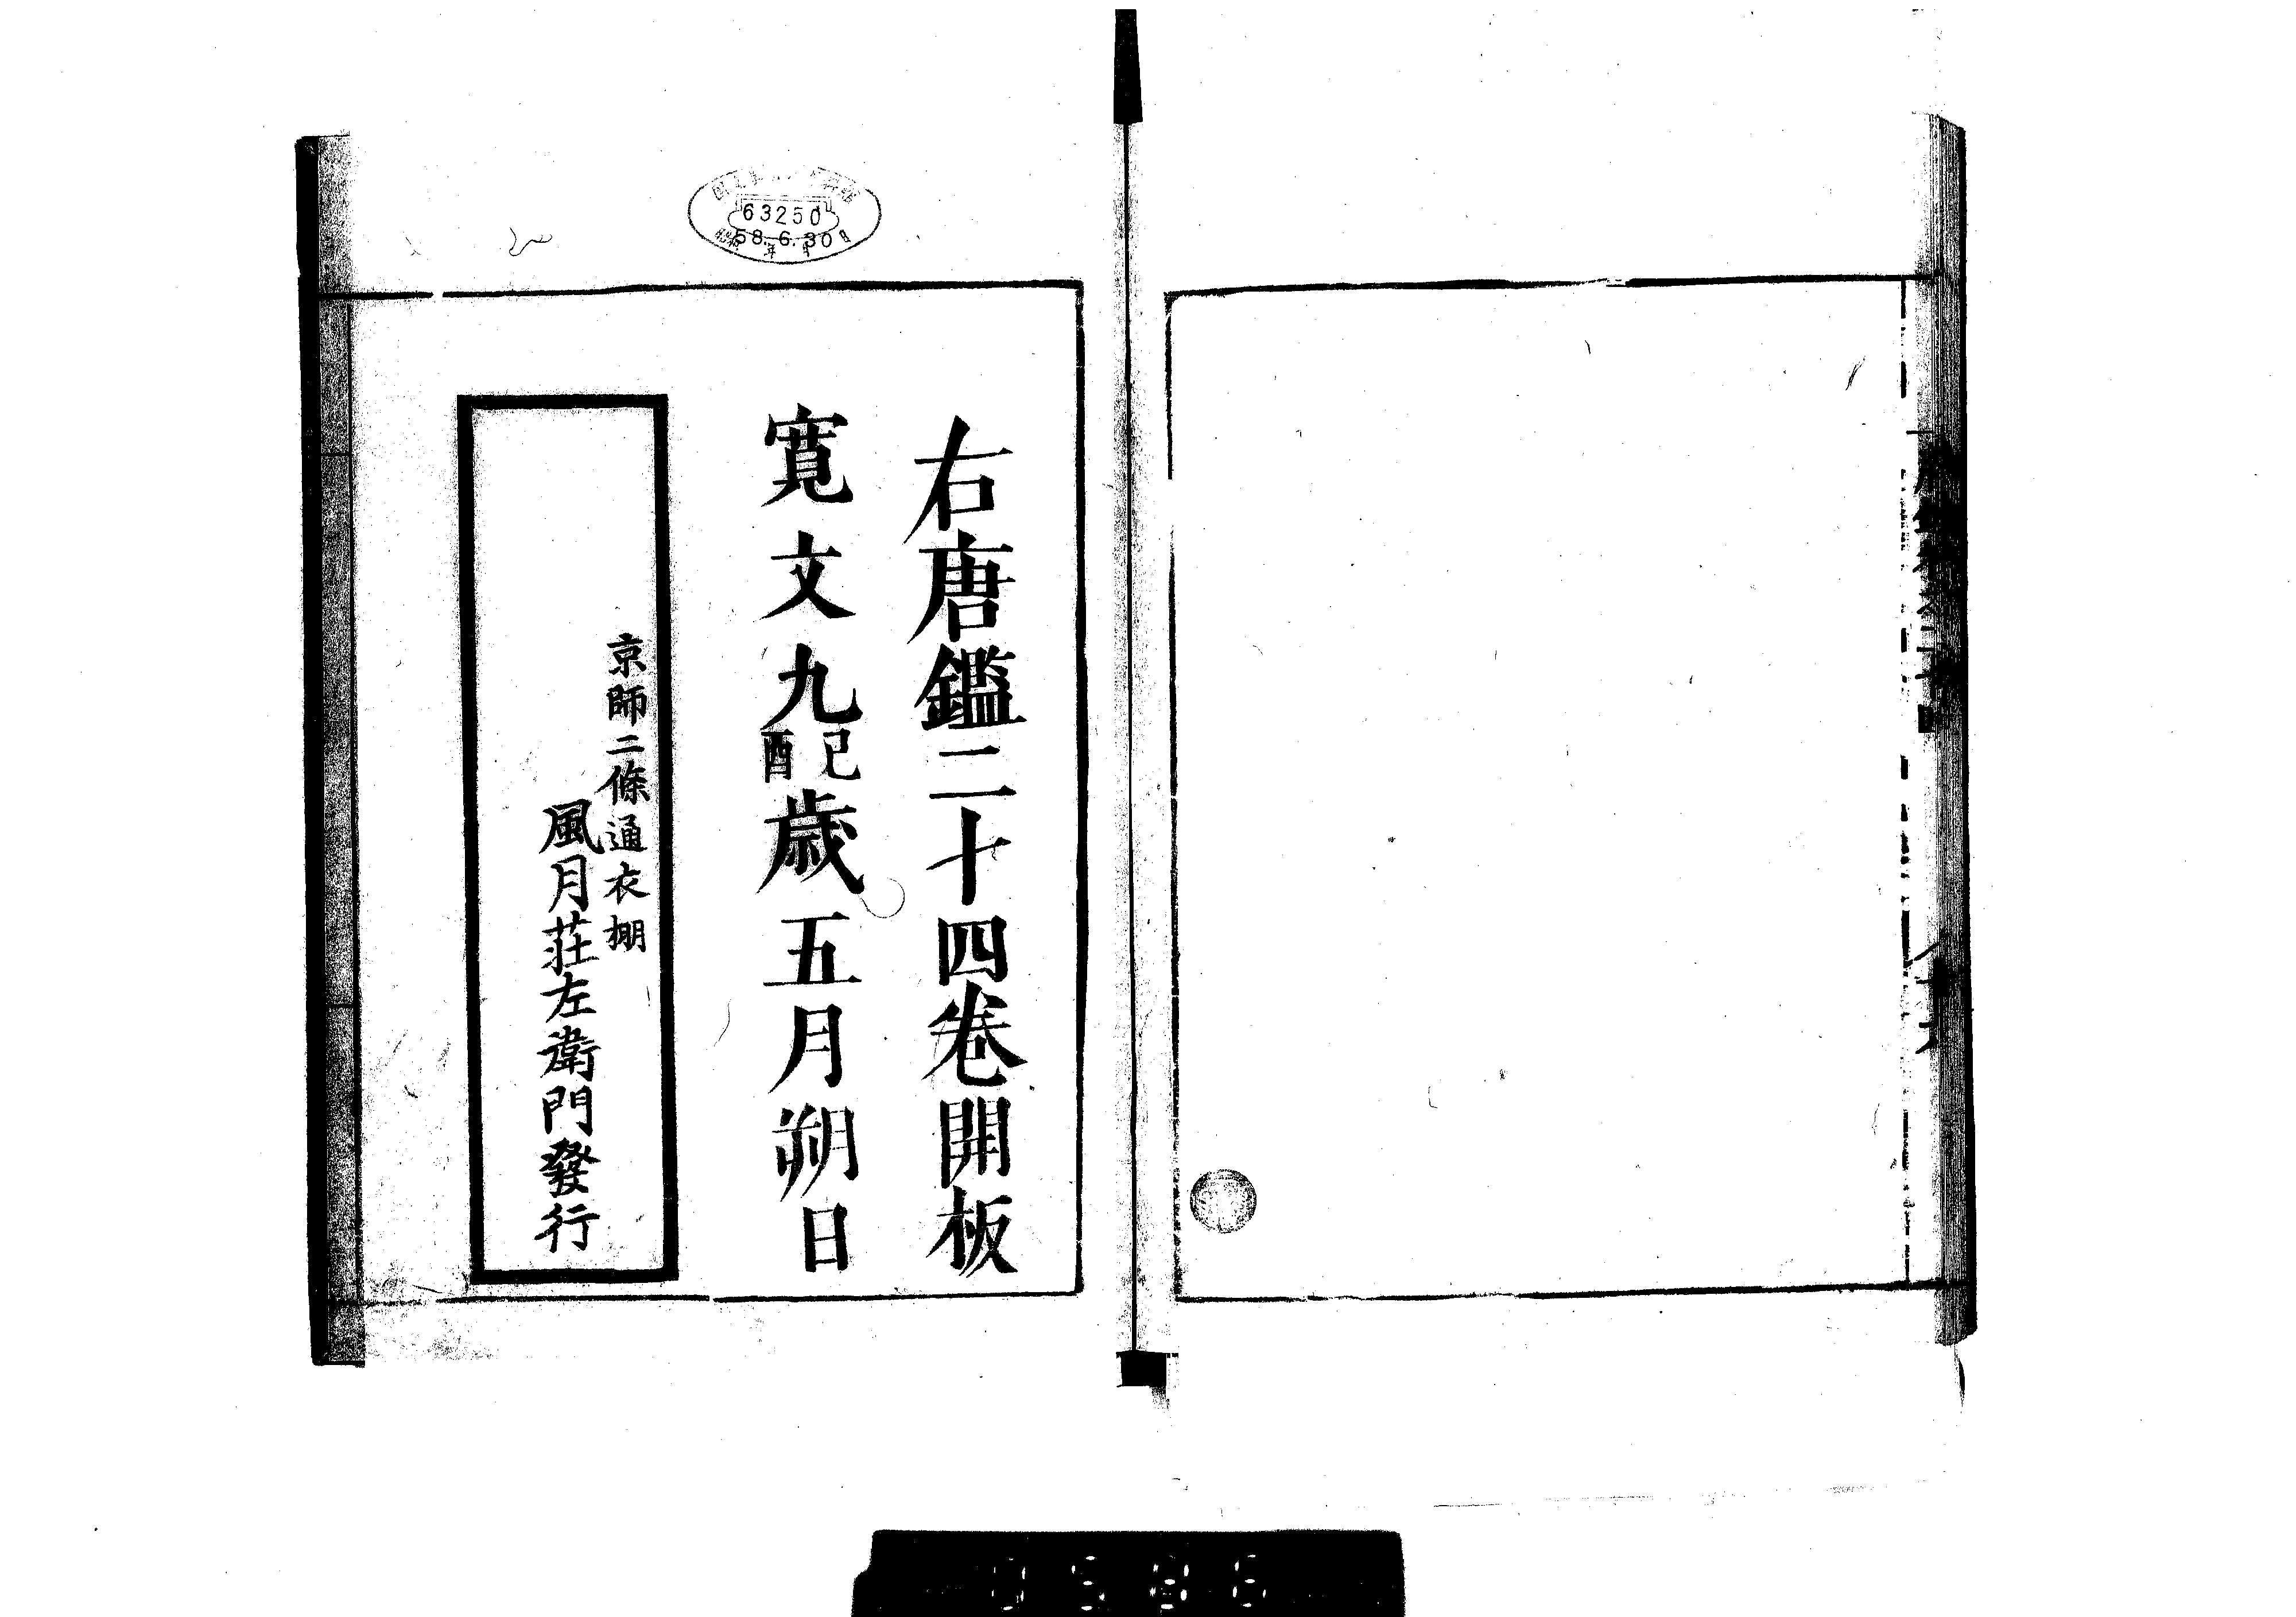 右唐鑑二十四卷開板
寛文九己酉歳五月朔日
京師二條通衣棚
風月莊左衞門發行
63250
58.6.30